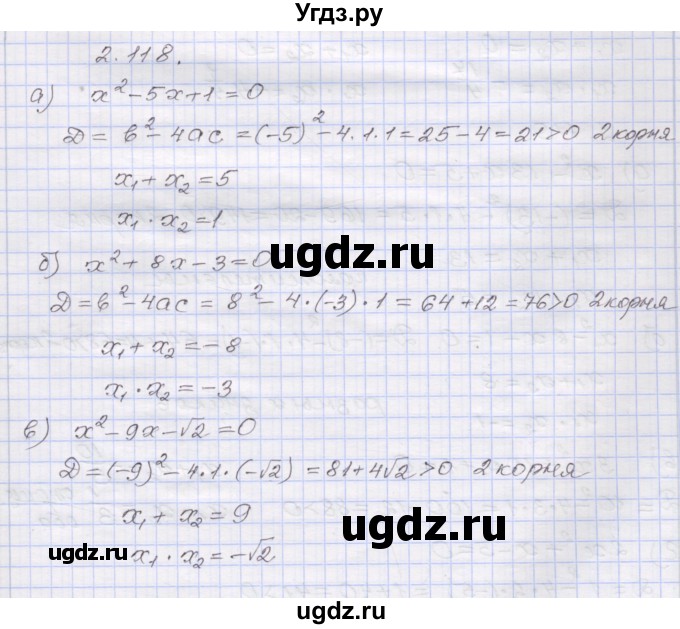 Угдз.ру
2.118.
а) x² - 5x + 1 = 0
Д = b² - 4ac = (-5)² - 4·1·1 = 25 - 4 = 21 > 0 2 корня
x₁ + x₂ = 5
x₁ · x₂ = 1
ugdz.ru
б) x² + 8x - 3 = 0
ugdz.ru
Д = b² - 4ac = 8² - 4·(-3)·1 = 64 + 12 = 76 > 0 2 корня
x₁ + x₂ = -8
x₁ · x₂ = -3
в) x² - 9x - √2 = 0
Д = (-9)² - 4·1·(-√2) = 81 + 4√2 > 0 2 корня
x₁ + x₂ = 9
ugdz.ru
ugdz.ru
x₁ · x₂ = -√2
ugdz.ru